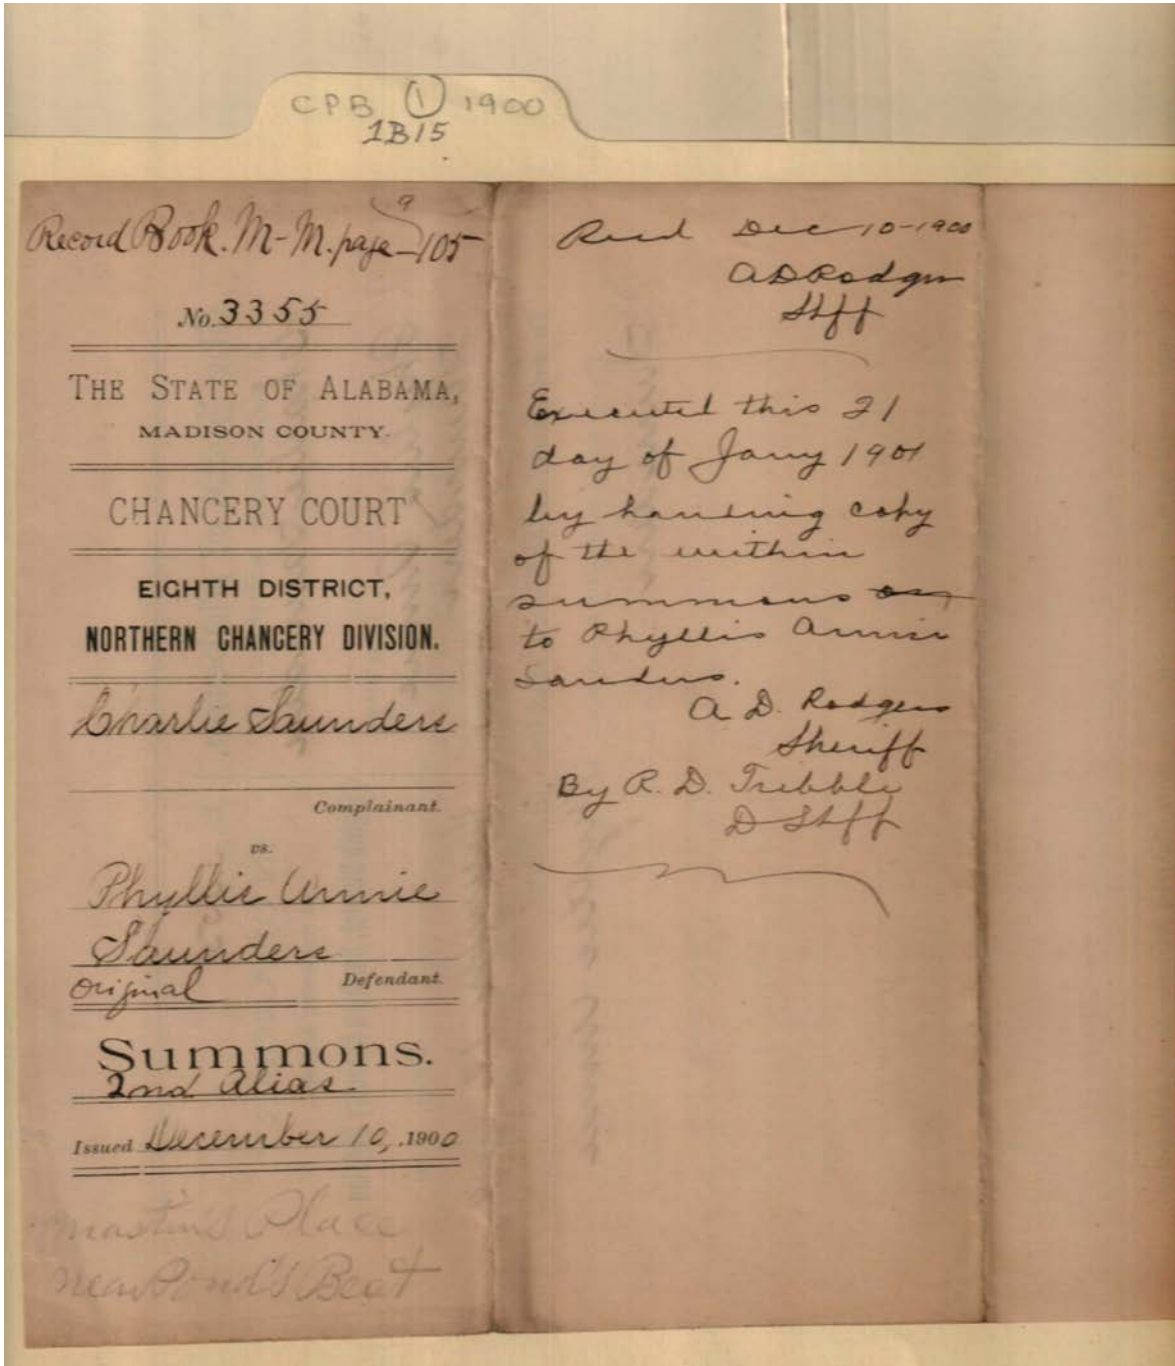 CPB ① 1900
1B15
Record Book. M-M. page 105
No. 3355
THE STATE OF ALABAMA,
MADISON COUNTY.
CHANCERY COURT
EIGHTH DISTRICT,
NORTHERN CHANCERY DIVISION.
Charlie Saunders
Complainant.
vs.
Phyllis Annie
Saunders
Original Defendant.
Summons.
2nd Alias
Issued December 10, 1900
Place
near Pond's Beat
Recd Dec 10-1900
A D Rodgers
Shff
Executed this 21
day of Jany 1901
by handing copy
of the within
summons on
to Phyllis Annie
Sanders.
A. D. Rodgers
Sheriff
By R. D. Tribble
D Shff